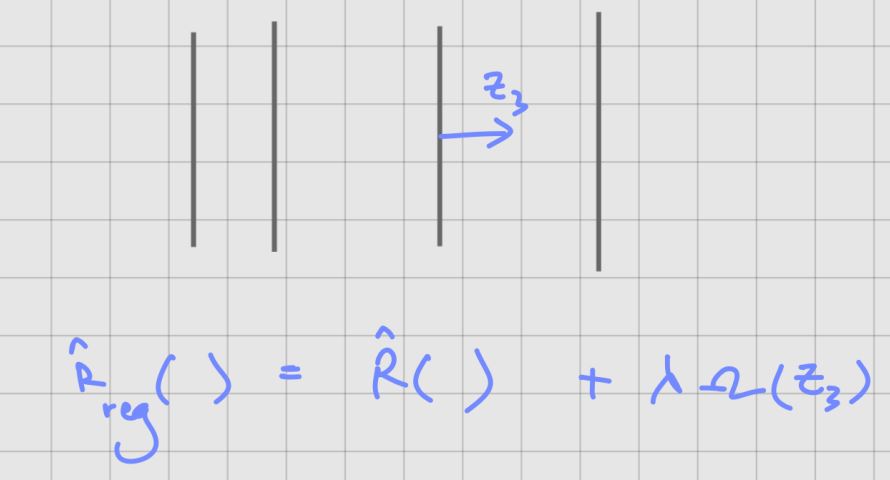 z₃
R̂_reg ( ) = R̂ ( ) + λ Ω (z₃)